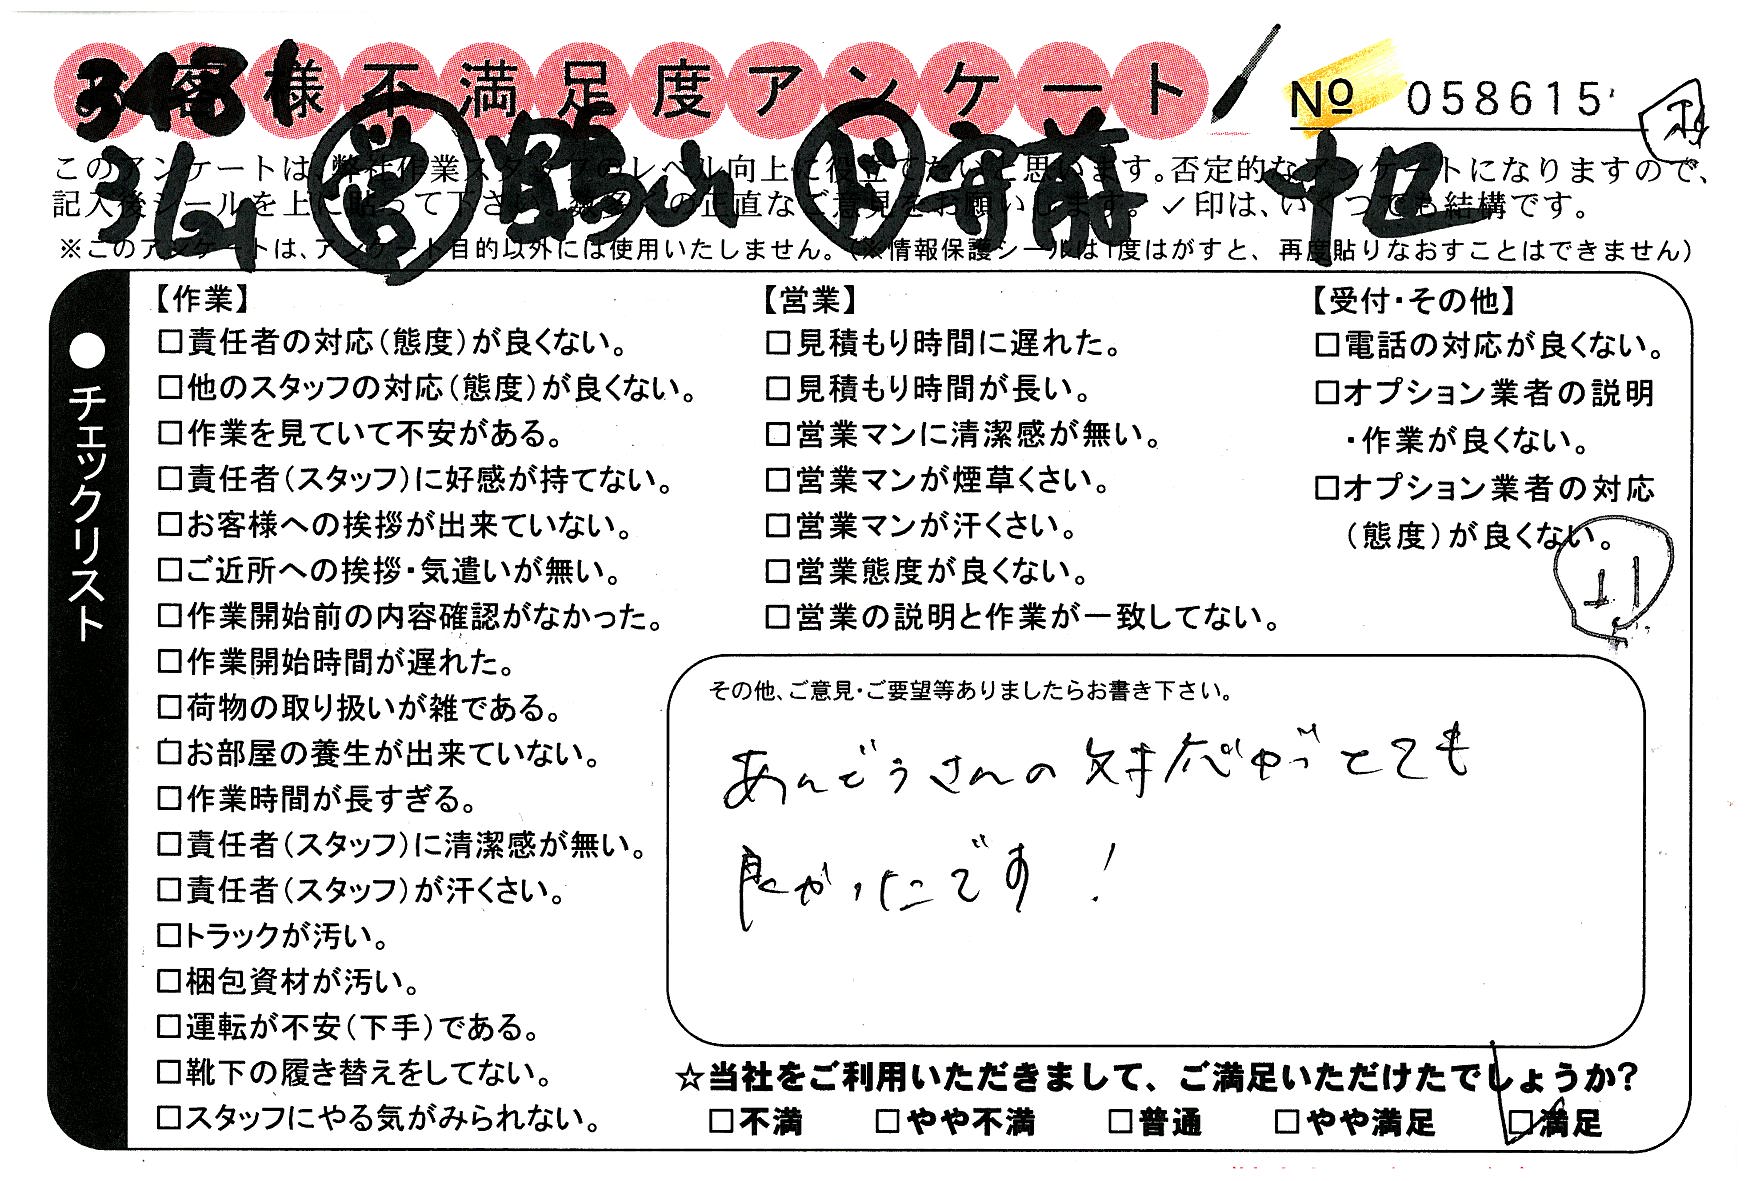 お客様不満足度アンケート
№ 058615
3481
3/21 営 ド 守前 中口
このアンケートは、弊社作業スタッフのレベル向上に役立てたいと思います。否定的なアンケートになりますので、
記入後シールを上に貼って下さい。数多くの正直なご意見をお願いします。✓印は、いくつでも結構です。
※このアンケートは、アンケート目的以外には使用いたしません。(※情報保護シールは1度はがすと、再度貼りなおすことはできません)
●チェックリスト
【作業】
□責任者の対応(態度)が良くない。
□他のスタッフの対応(態度)が良くない。
□作業を見ていて不安がある。
□責任者(スタッフ)に好感が持てない。
□お客様への挨拶が出来ていない。
□ご近所への挨拶・気遣いが無い。
□作業開始前の内容確認がなかった。
□作業開始時間が遅れた。
□荷物の取り扱いが雑である。
□お部屋の養生が出来ていない。
□作業時間が長すぎる。
□責任者(スタッフ)に清潔感が無い。
□責任者(スタッフ)が汗くさい。
□トラックが汚い。
□梱包資材が汚い。
□運転が不安(下手)である。
□靴下の履き替えをしてない。
□スタッフにやる気がみられない。
【営業】
□見積もり時間に遅れた。
□見積もり時間が長い。
□営業マンに清潔感が無い。
□営業マンが煙草くさい。
□営業マンが汗くさい。
□営業態度が良くない。
□営業の説明と作業が一致してない。
【受付・その他】
□電話の対応が良くない。
□オプション業者の説明
・作業が良くない。
□オプション業者の対応
(態度)が良くない。
その他、ご意見・ご要望等ありましたらお書き下さい。
あんどうさんの対応がとても
良かったです!
☆当社をご利用いただきまして、ご満足いただけたでしょうか?
□不満 □やや不満 □普通 □やや満足 ☑満足